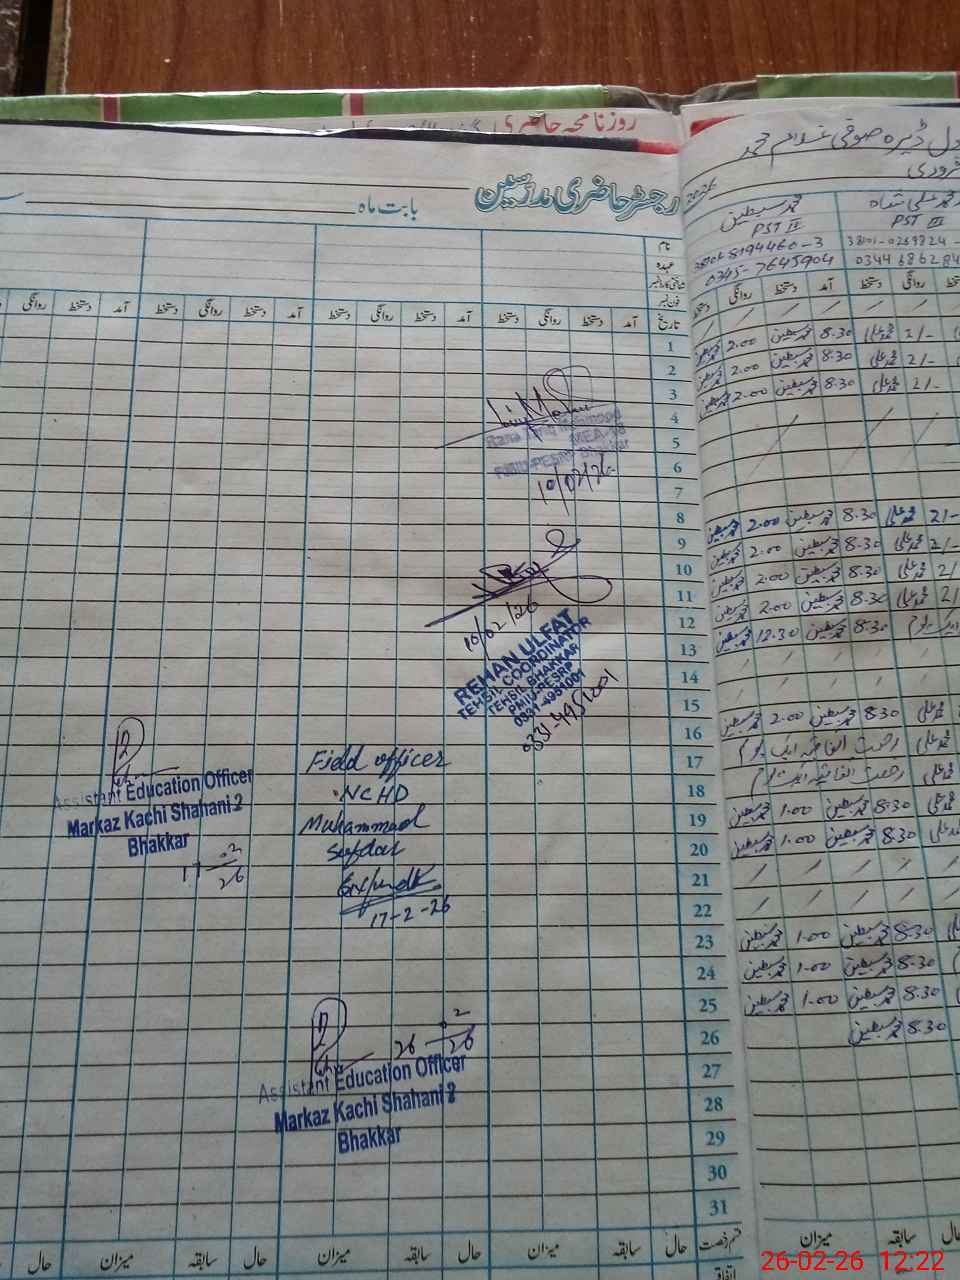 روزنامچہ حاضری
رجسٹر حاضری مدرسین
بابت ماہ
نام
عہدہ
شناختی کارڈ نمبر
فون نمبر
تاریخ آمد دستخط روانگی دستخط آمد دستخط روانگی دستخط آمد دستخط روانگی دستخط
1
2
3
4
5
6
7
8
9
10
11
12
13
14
15
16
17
18
19
20
21
22
23
24
25
26
27
28
29
30
31
قسم رخصت حال سابقہ میزان حال سابقہ میزان حال سابقہ میزان حال
اتفاقیہ
MEA
PMIU-PESRP Bhakkar
10/02/26
10/02/26
REHAN ULFAT
TEHSIL COORDINATOR
TEHSIL BHAKKAR
PMIU-PESRP
0331-4951001
0331-4951001
Assistant Education Officer
Markaz Kachi Shahani 2
Bhakkar
17-02-26
Field officer
NCHD
Muhammad
Safdar
17-2-26
26-02-26
Assistant Education Officer
Markaz Kachi Shahani 2
Bhakkar
ڈیرہ صوفی غلام محمد
فروری
2026
محمد علی شاہ محمد سبطین
PST III PST II
38101-0269824- -3
0344686284 0345-7645904
دستخط روانگی آمد دستخط روانگی دستخط
2/- محمد علی 8.30 محمد سبطین 2.00 محمد سبطین
2/- محمد علی 8.30 محمد سبطین 2.00 محمد سبطین
2/- محمد علی 8.30 محمد سبطین 2.00 محمد سبطین
2/- محمد علی 8.30 محمد سبطین 2.00 محمد سبطین
2/- محمد علی 8.30 محمد سبطین 2.00 محمد سبطین
2/ محمد علی 8.30 محمد سبطین 2.00 محمد سبطین
2/ محمد علی 8.30 محمد سبطین 2.00 محمد سبطین
ایک یوم 8.30 محمد سبطین 12.30 محمد سبطین
محمد علی 8.30 محمد سبطین 2.00 محمد سبطین
محمد علی رخصت اتفاقیہ ایک یوم
محمد علی رخصت اتفاقیہ ایک یوم
محمد علی 8.30 محمد سبطین 1.00 محمد سبطین
محمد علی 8.30 محمد سبطین 1.00 محمد سبطین
8.30 محمد سبطین 1.00 محمد سبطین
8.30 محمد سبطین 1.00 محمد سبطین
8.30 محمد سبطین 1.00 محمد سبطین
8.30 محمد سبطین
حال سابقہ میزان
26-02-26 12:22